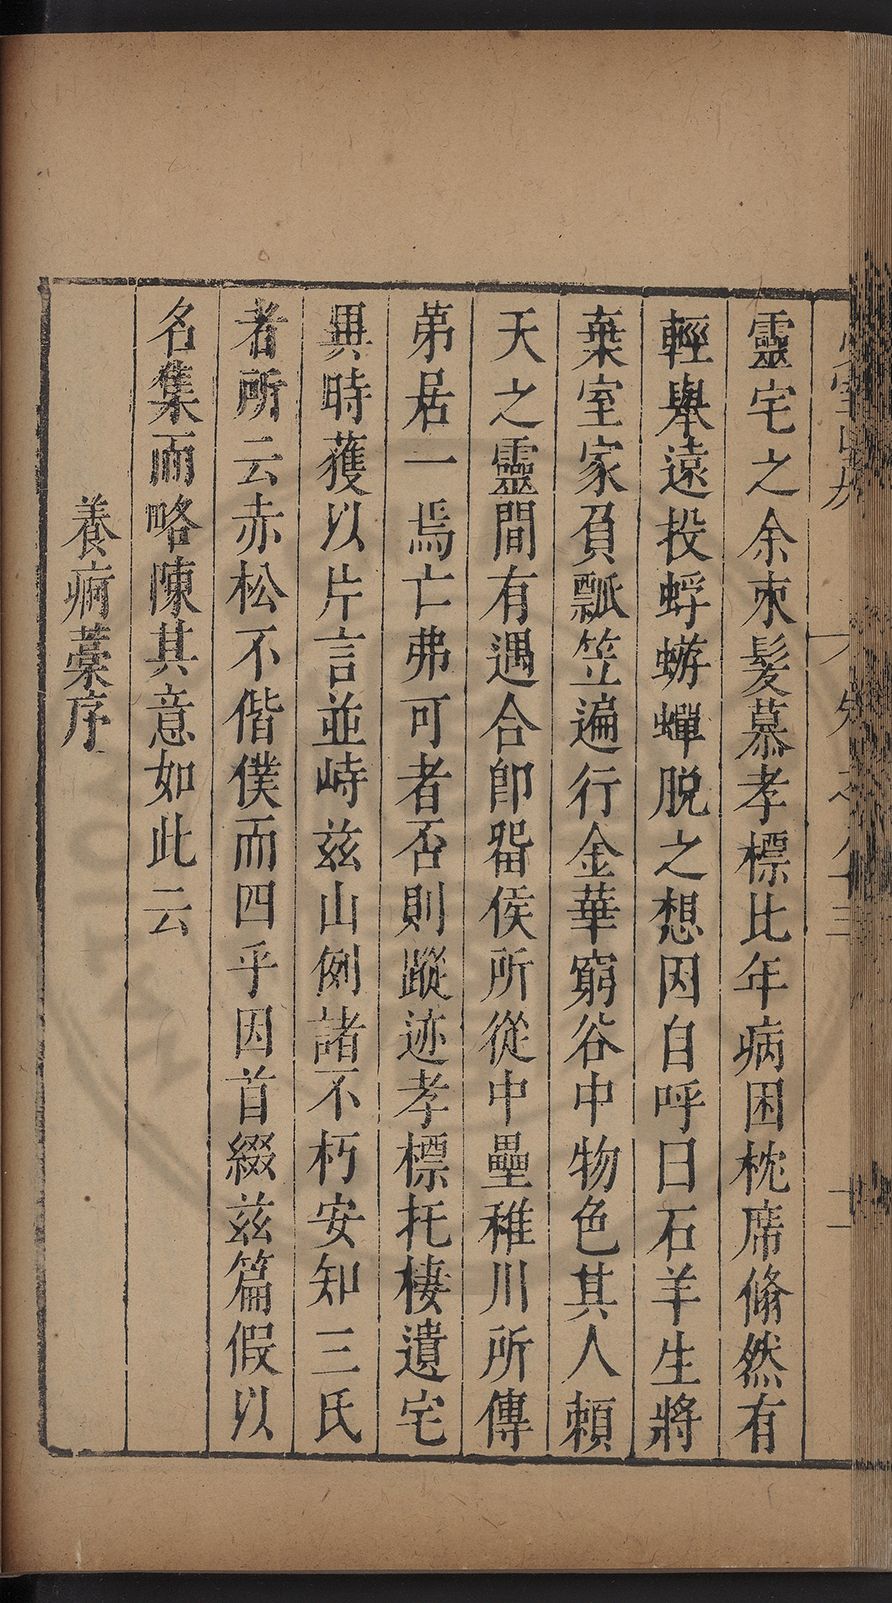 靈宅之余束髮慕孝標比年病困枕席翛然有
輕舉遠投蜉蝣蟬脫之想因自呼曰石羊生將
棄室家負瓢笠遍行金華窮谷中物色其人賴
天之靈間有遇合卽畱侯所從中壘稚川所傳
第居一焉亡弗可者否則蹤迹孝標托棲遺宅
異時獲以片言並峙兹山例諸不朽安知三氏
者所云赤松不偕僕而四乎因首綴兹篇假以
名集而略陳其意如此云
養痾藁序